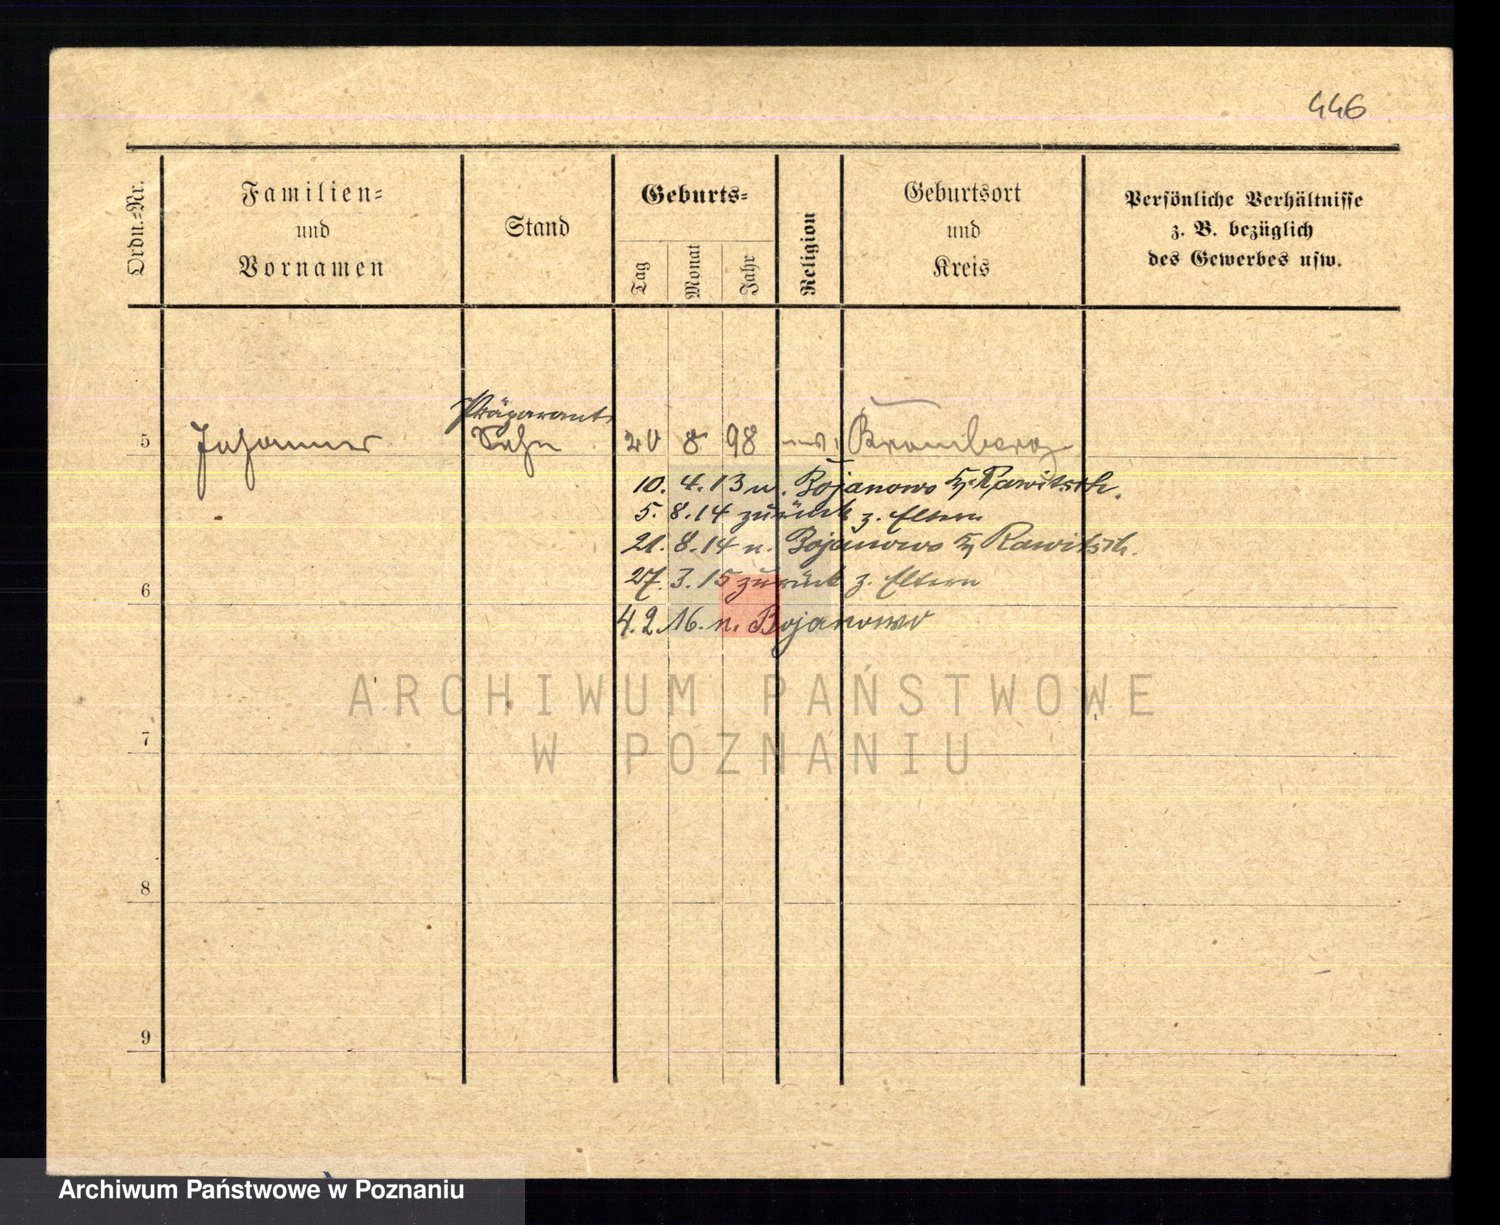 446
Ordn.-Nr.
Familien-
und
Vornamen
Stand
Geburts-
Tag
Monat
Jahr
Religion
Geburtsort
und
Kreis
Persönliche Verhältnisse
z. B. bezüglich
des Gewerbes usw.
Präparant
5 Johannes Sohn 20 8 98 Bromberg
10. 4. 13 n. Bojanowo Rawitsch.
5. 8. 14 zurück z. Eltern
21. 8. 14 n. Bojanowo Rawitsch.
27. 3. 15 zurück z. Eltern
6
4. 2. 16. n. Bojanowo
ARCHIWUM PAŃSTWOWE
W POZNANIU
7
8
9
Archiwum Państwowe w Poznaniu